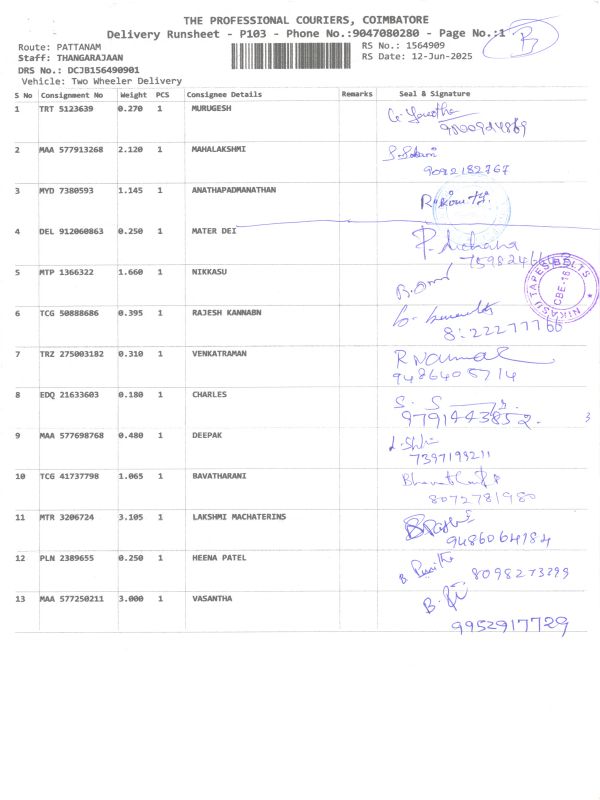 THE PROFESSIONAL COURIERS, COIMBATORE
Delivery Runsheet - P103 - Phone No.:9047080280 - Page No.:1
Route: PATTANAM RS No.: 1564909
Staff: THANGARAJAAN RS Date: 12-Jun-2025
DRS No.: DCJB156490901
Vehicle: Two Wheeler Delivery
S No Consignment No Weight PCS Consignee Details Remarks Seal & Signature
1 TRT 5123639 0.270 1 MURUGESH
2 MAA 577913268 2.120 1 MAHALAKSHMI
9092182767
3 MYD 7380593 1.145 1 ANATHAPADMANATHAN
4 DEL 912060863 0.250 1 MATER DEI
5 MTP 1366322 1.660 1 NIKKASU
NIKASU TAPES BOLTS CBE-16
6 TCG 50888686 0.395 1 RAJESH KANNABN
7 TRZ 275003182 0.310 1 VENKATRAMAN
9486405714
8 EDQ 21633603 0.180 1 CHARLES
9791443852.
9 MAA 577698768 0.480 1 DEEPAK
7397199211
10 TCG 41737798 1.065 1 BAVATHARANI
8072781980
11 MTR 3206724 3.105 1 LAKSHMI MACHATERINS
9486064184
12 PLN 2389655 0.250 1 HEENA PATEL
8098273299
13 MAA 577250211 3.000 1 VASANTHA
9952917729